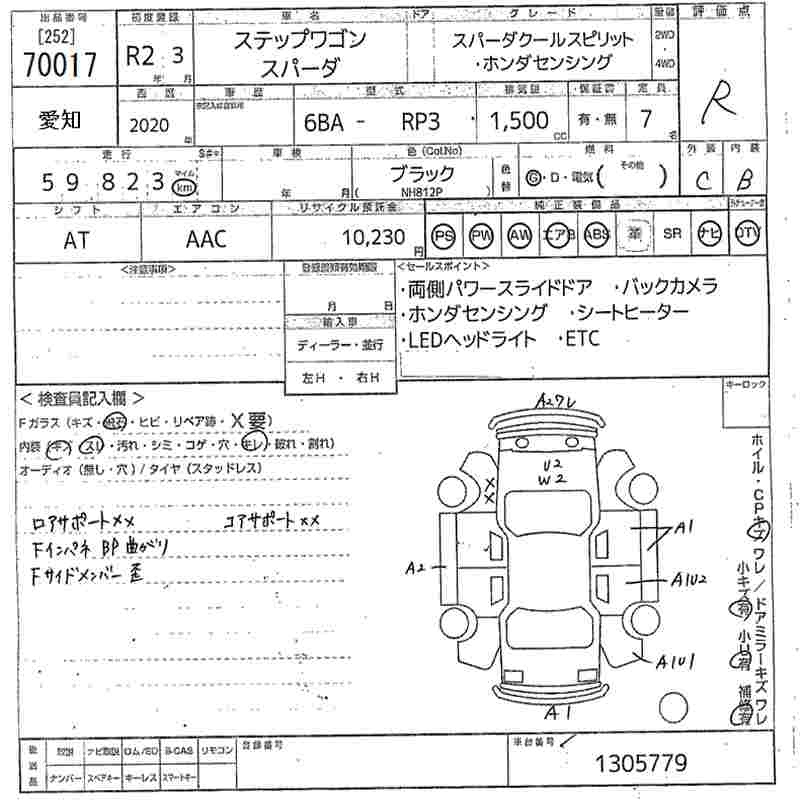 出品番号 初度登録 車名 ドア グレード 評価点
[252]
70017 R2 年 3 月 ステップワゴン スパーダ スパーダクールスピリット ・ホンダセンシング 2WD ・ 4WD R
愛知 西暦 2020 年 車歴 型式 6BA - RP3 排気量 1,500 CC 保証書 有・無 定員 7 名
走行 車検 色(Col.No) 燃料 外装 内装
59 823 マイル km 年 月 ブラック ( NH812P ) 色替 G・D・電気( その他 ) C B
シフト エアコン リサイクル預託金 純正装備品
AT AAC 10,230 円 PS PW AW エアB ABS 革 SR ナビ DTV
<注意事項> <セールスポイント>
月 日
・両側パワースライドドア ・バックカメラ
輸入車 ・ホンダセンシング ・シートヒーター
ディーラー・並行 ・LEDヘッドライト ・ETC
左H ・ 右H
キーロック
<検査員記入欄>
Fガラス(キズ・飛石・ヒビ・リペア跡・X要)
内装(キズ・スレ・汚れ・シミ・コゲ・穴・キレ・破れ・割れ)
オーディオ(無し・穴)/タイヤ(スタッドレス)
ロアサポートXX コアサポートXX
Fインパネ BP曲がり
Fサイドメンバー 歪
A2ワレ
U2
W2
X
X
A1
A2
A1U2
A1U1
A1
ホイル・CPキズ ワレ/ドアミラーキズ ワレ
小キズ有 小U有 補修有
取説 ナビ取説 ロム/SD B-CAS リモコン 登録番号 車台番号
ナンバー スペアキー キーレス スマートキー 1305779